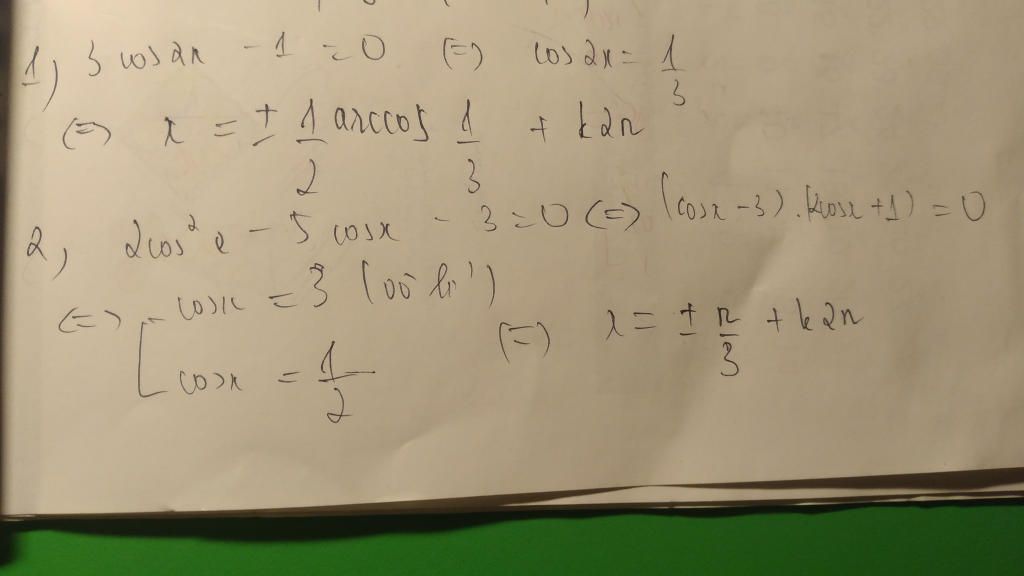 1, 3 cos2x - 1 = 0 (=) cos2x = 1/3
(=) x = ± 1/2 arccos 1/3 + k2π
2, 2cos²x - 5 cosx - 3 = 0 (=) (cosx - 3).(2cosx + 1) = 0
(=) [ cosx = 3 (vô lí)
cosx = 1/2 (=) x = ± π/3 + k2π